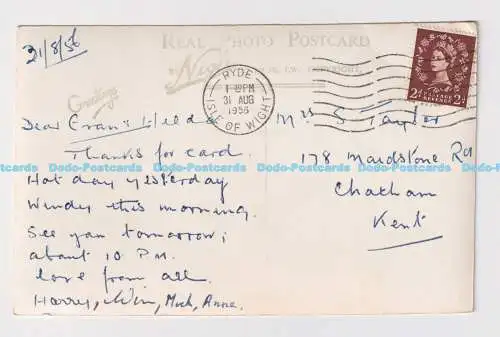 31/8/56
REAL PHOTO POSTCARD
Nigh
I.W. COPYRIGHT.
Greetings
RYDE
PM
31 AUG
1956
ISLE OF WIGHT
2d POSTAGE REVENUE 2d
Dear Gran & Hilda
Thanks for card.
Hot day yesterday
Windy this morning.
See you tomorrow,
about 10 P.M.
love from all.
Harry, Win, Mick, Anne.
Mrs S Taylor
178 Maidstone Rd
Chatham
Kent
Dodo-Postcards Dodo-Postcards Dodo-Postcards Dodo-Postcards Dodo-Postcards